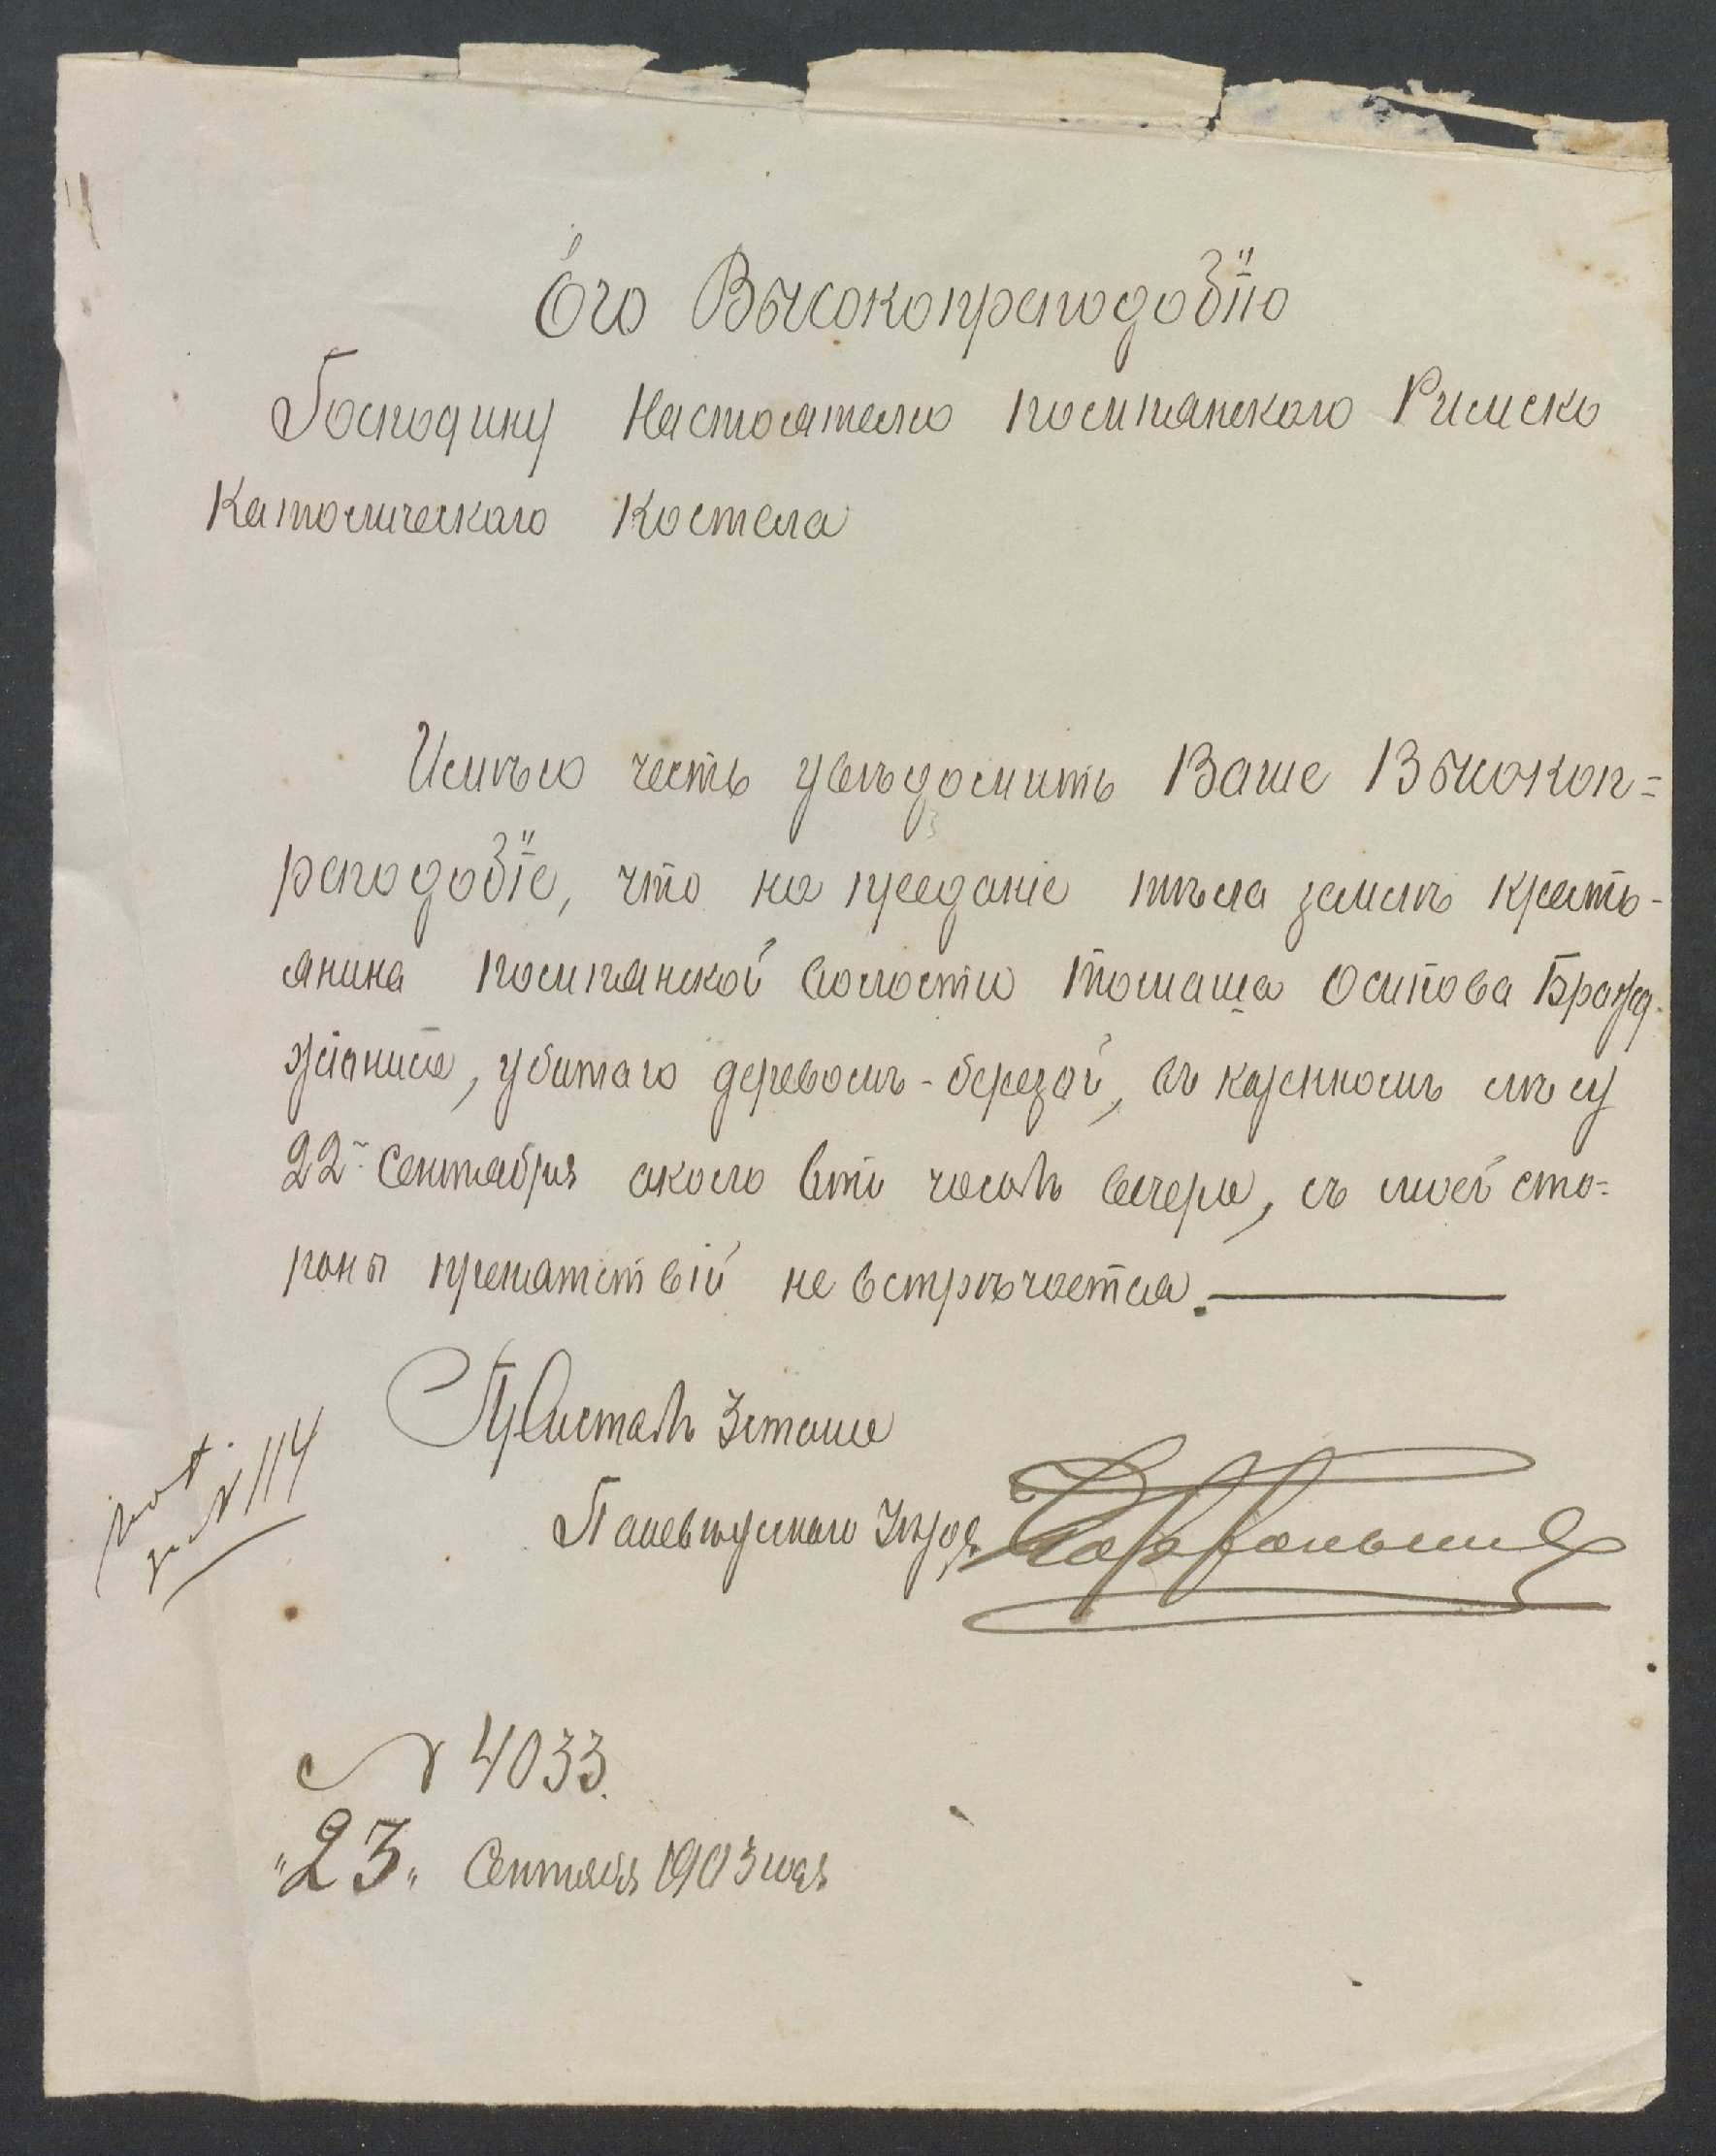 Его Высокопреподобію
Господину Настоятелю помпянскаго Римско
Католическаго Костела
Имѣю честь увѣдомить Ваше Высокоп=
реподобіе, что на преданіе тѣла землѣ кресть-
янина помпянской волости Томаша Осипова
убитаго деревомъ-березой, въ казенномъ лѣсу
22 Сентября около 6ти часовъ вечера, съ моей сто=
роны препятствій не встрѣчается.
Приставъ 3 стана
Паневѣжскаго Уѣзда
№ 114
№ 4033.
"23" Сентября 1903 года